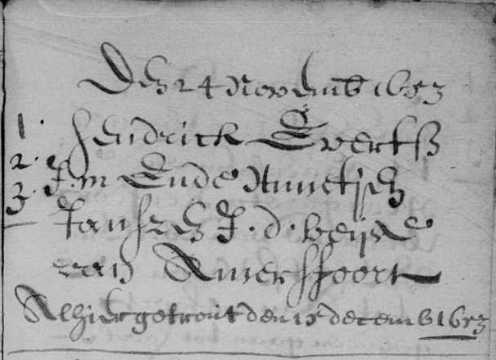 Den 24 Novemb 1653
1. Hendrick Evertß
2. J.m Ende Annetjen
3. Jansen J.d. beyde
van Amersfoort
Alhier getrout den 15 decemb 1653